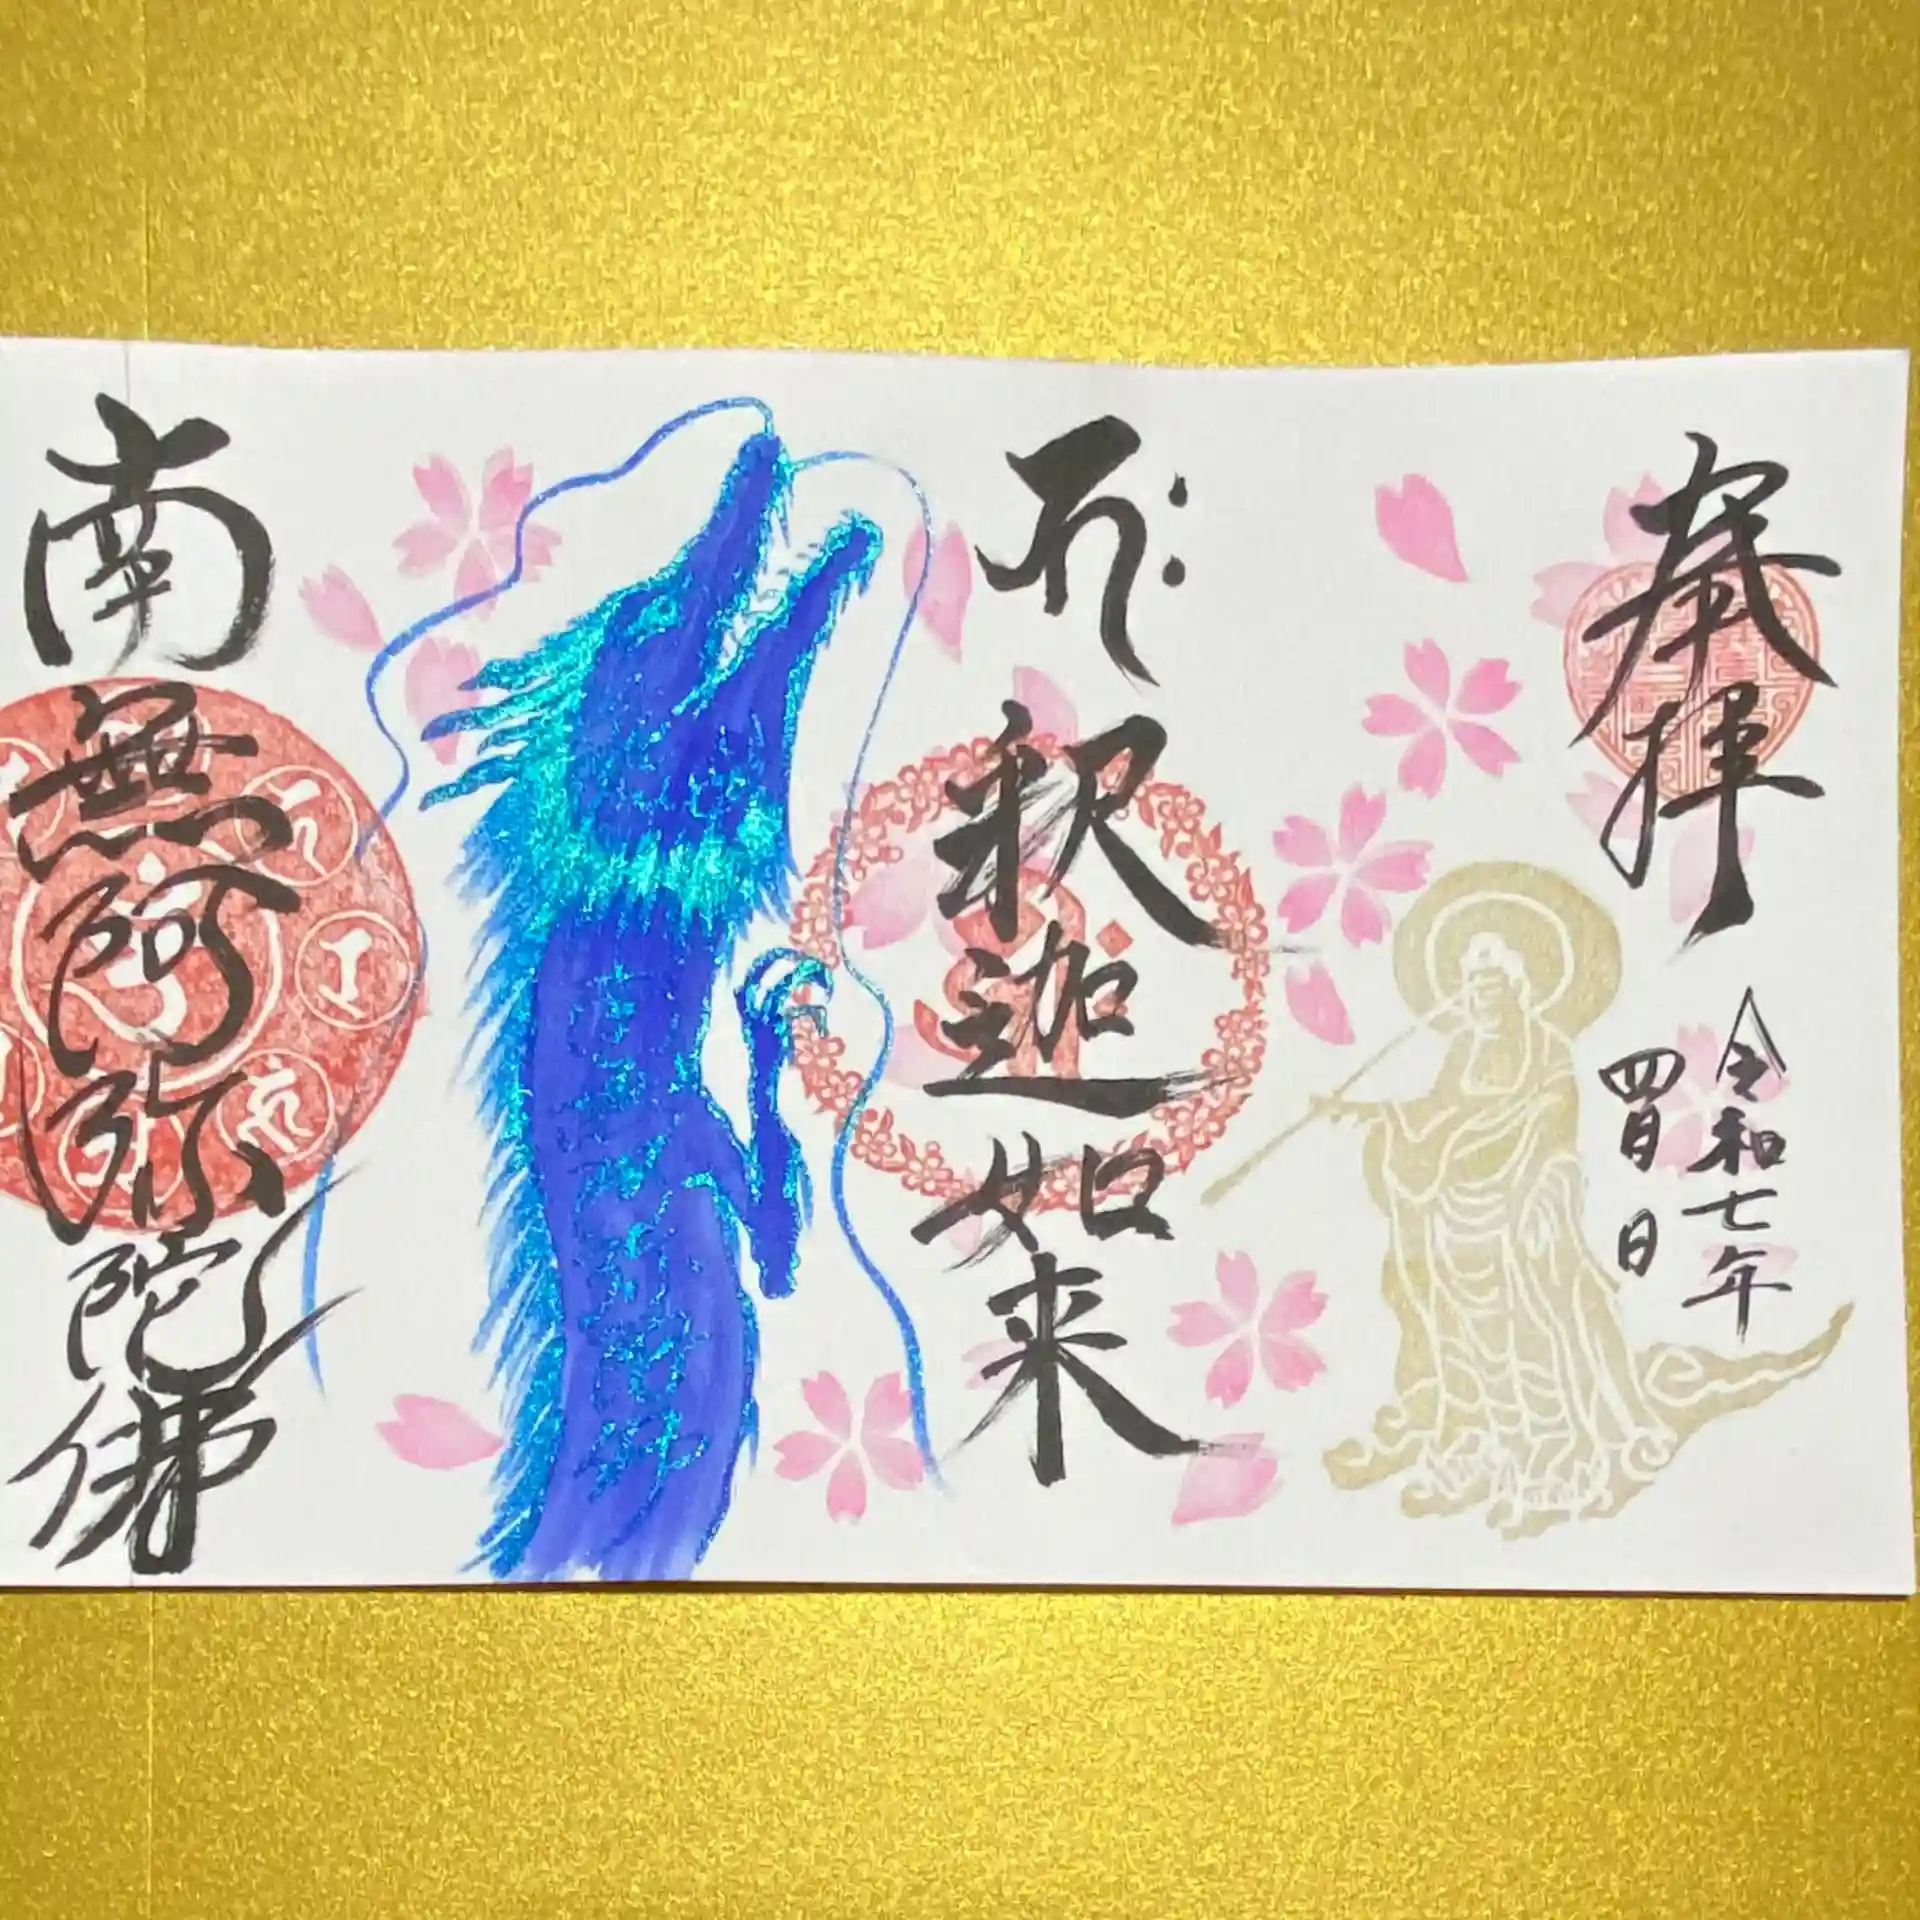 奉拝
令和七年
四月日
釈迦如来
南無阿弥陀佛